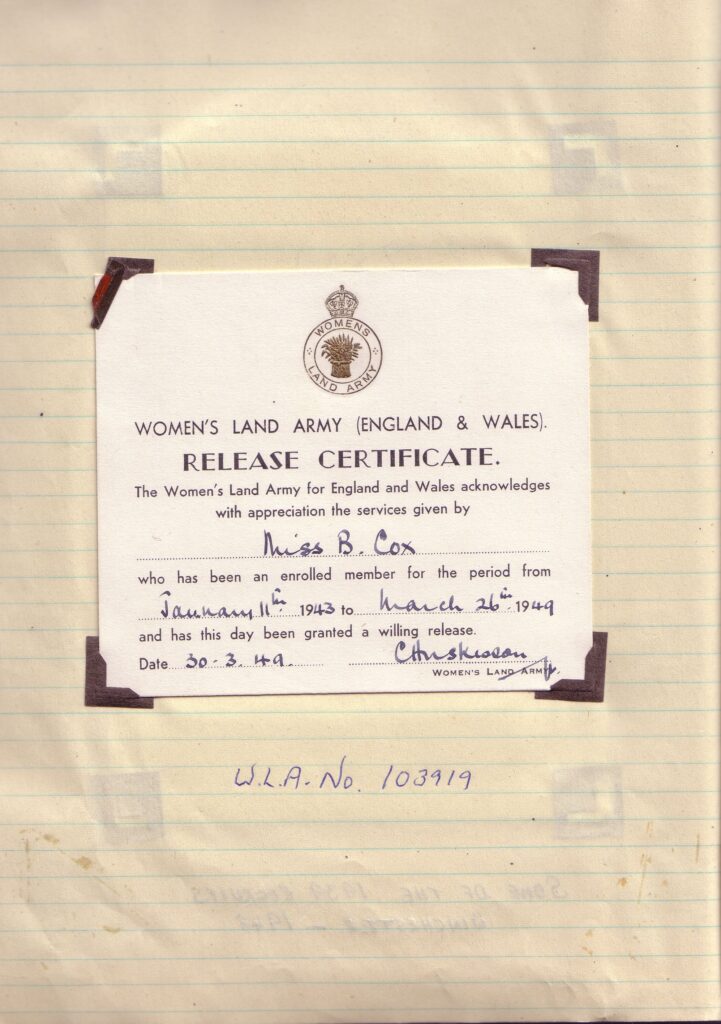 WOMENS
LAND ARMY
WOMEN'S LAND ARMY (ENGLAND & WALES).
RELEASE CERTIFICATE.
The Women's Land Army for England and Wales acknowledges
with appreciation the services given by
Miss B. Cox
who has been an enrolled member for the period from
January 11th 1943 to March 26th 1949
and has this day been granted a willing release.
Date 30.3.49. CHuskisson
WOMEN'S LAND ARMY.
W.L.A. No. 103919
SOME OF THE 1939
- 1943